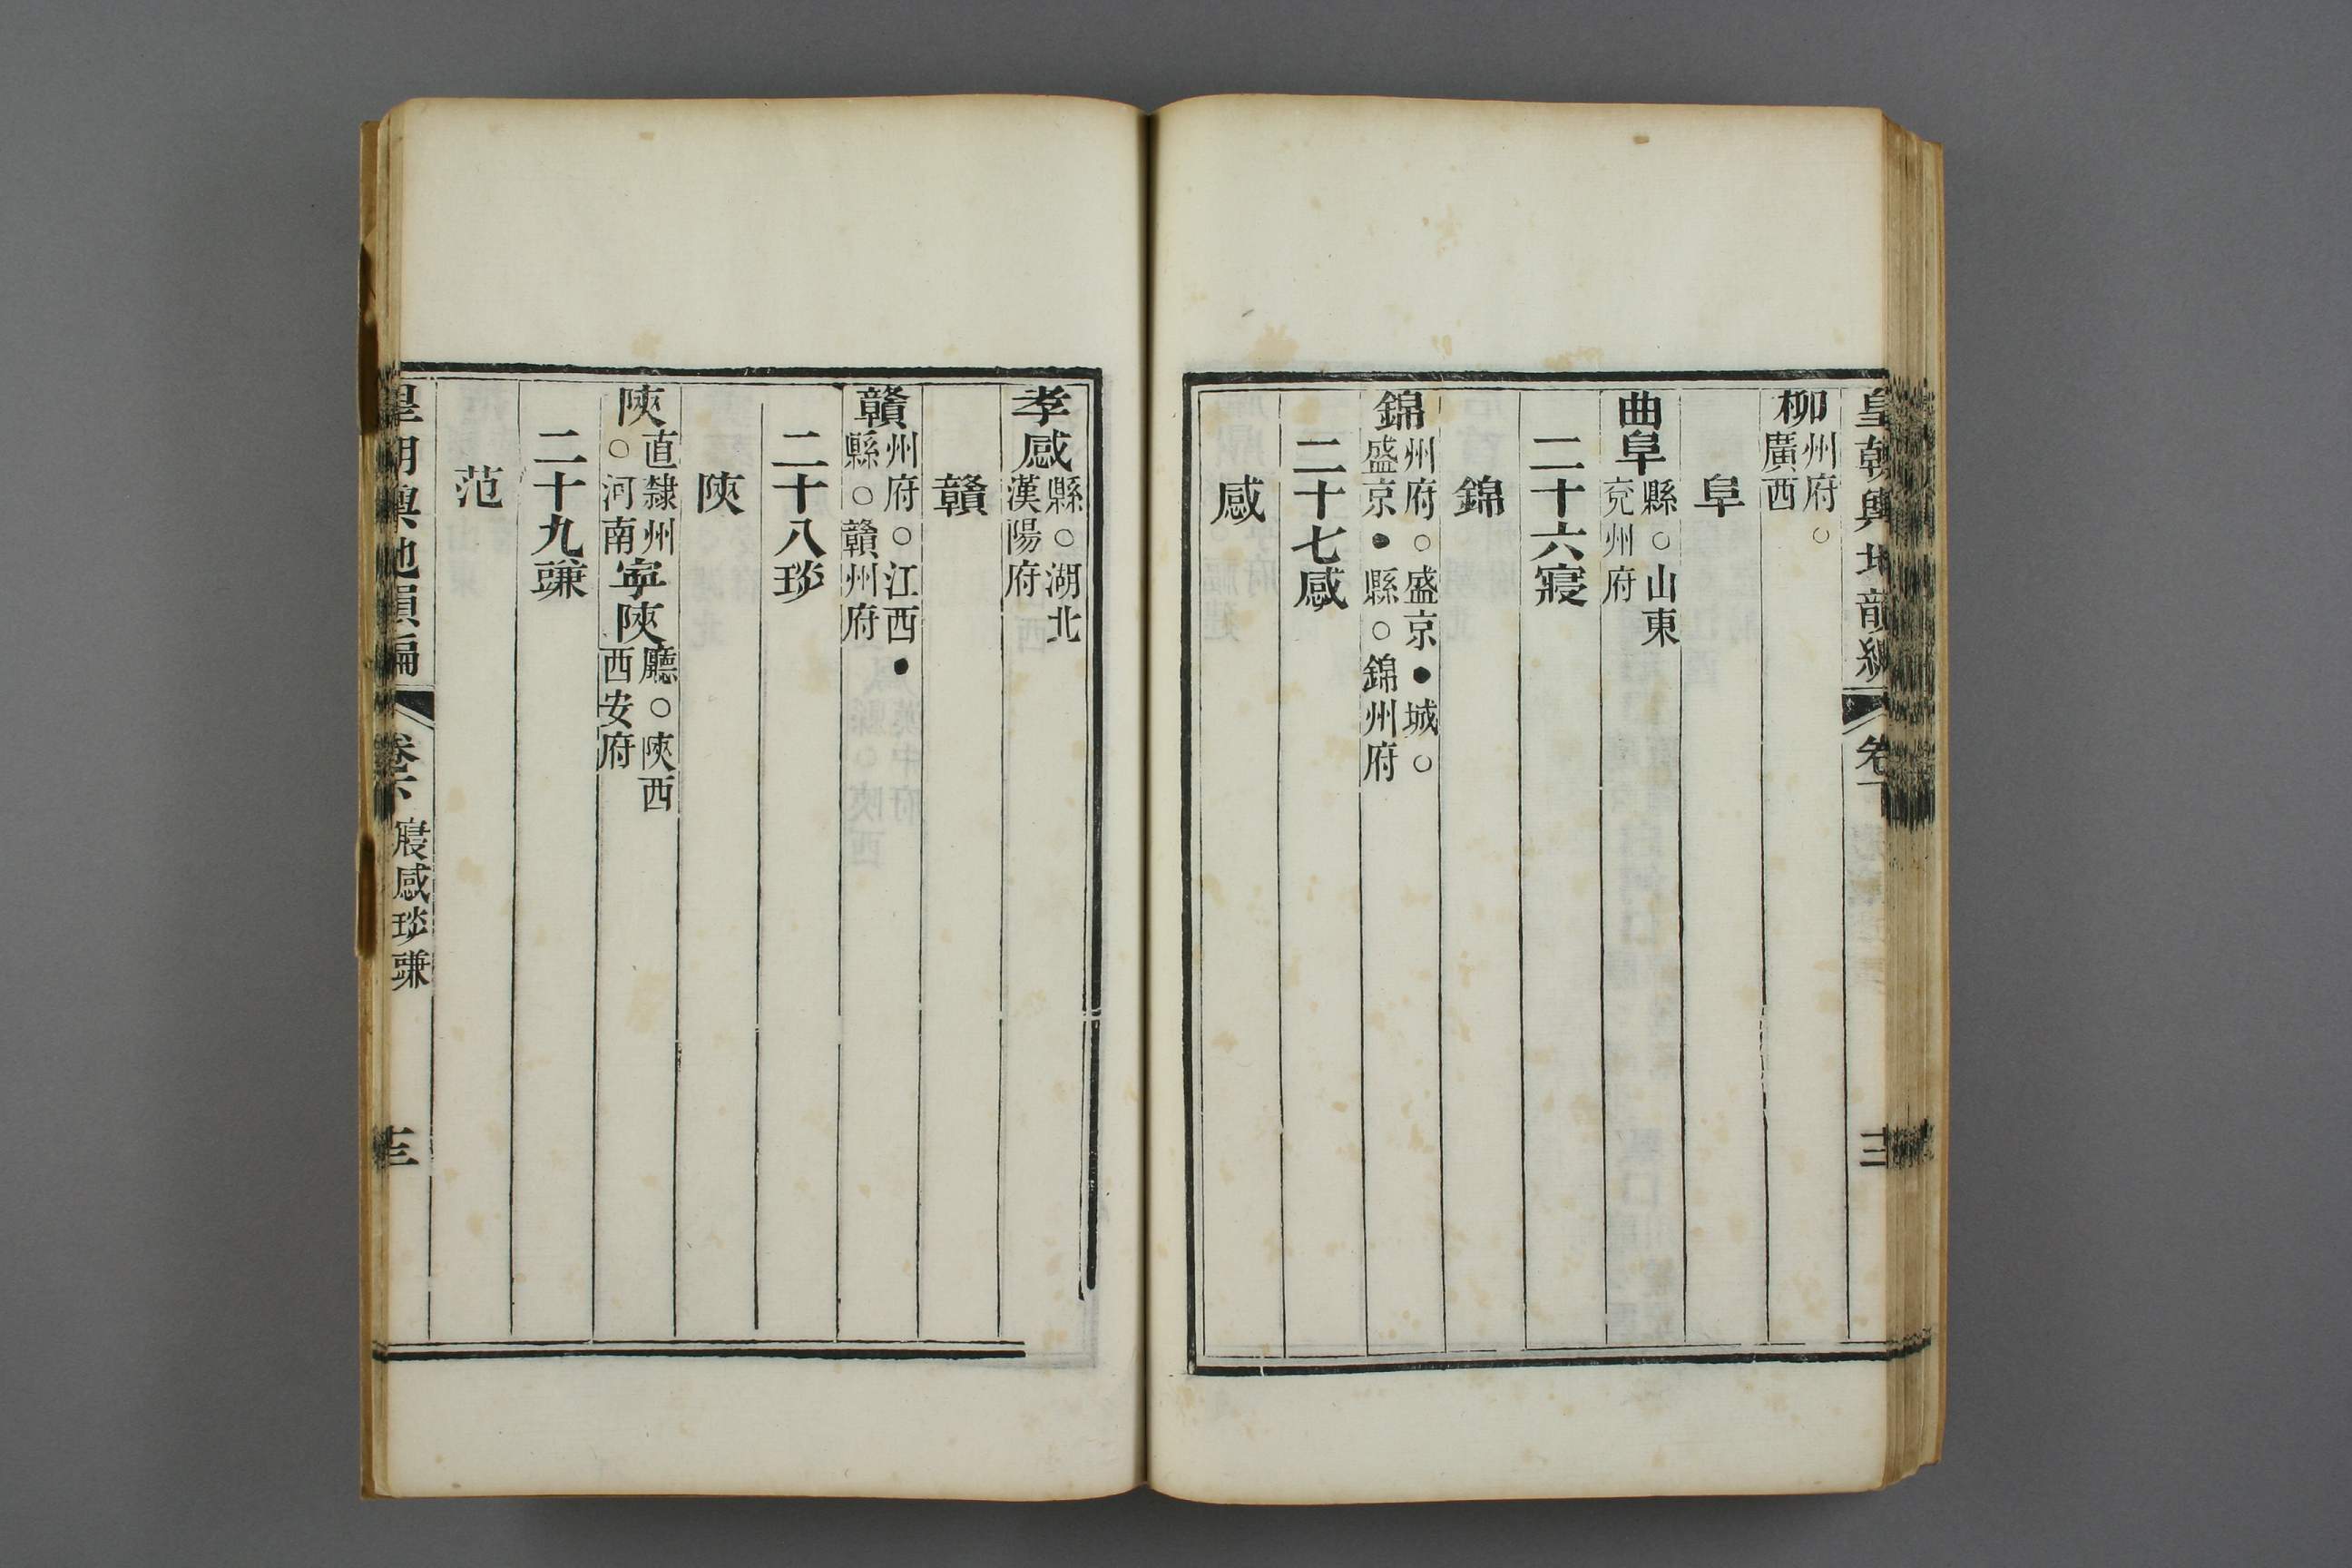 皇朝輿地韻編 卷下
柳州府○廣西
阜
曲阜縣○山東兗州府
二十六寢
錦
錦州府○盛京●城○盛京●縣○錦州府
二十七感
感
孝感縣○湖北漢陽府
贛
贛州府○江西●縣○贛州府
二十八琰
陝
陝直隸州○河南寧陝廳○陝西西安府
二十九豏
范
皇朝輿地韻編 卷下 寢感琰豏